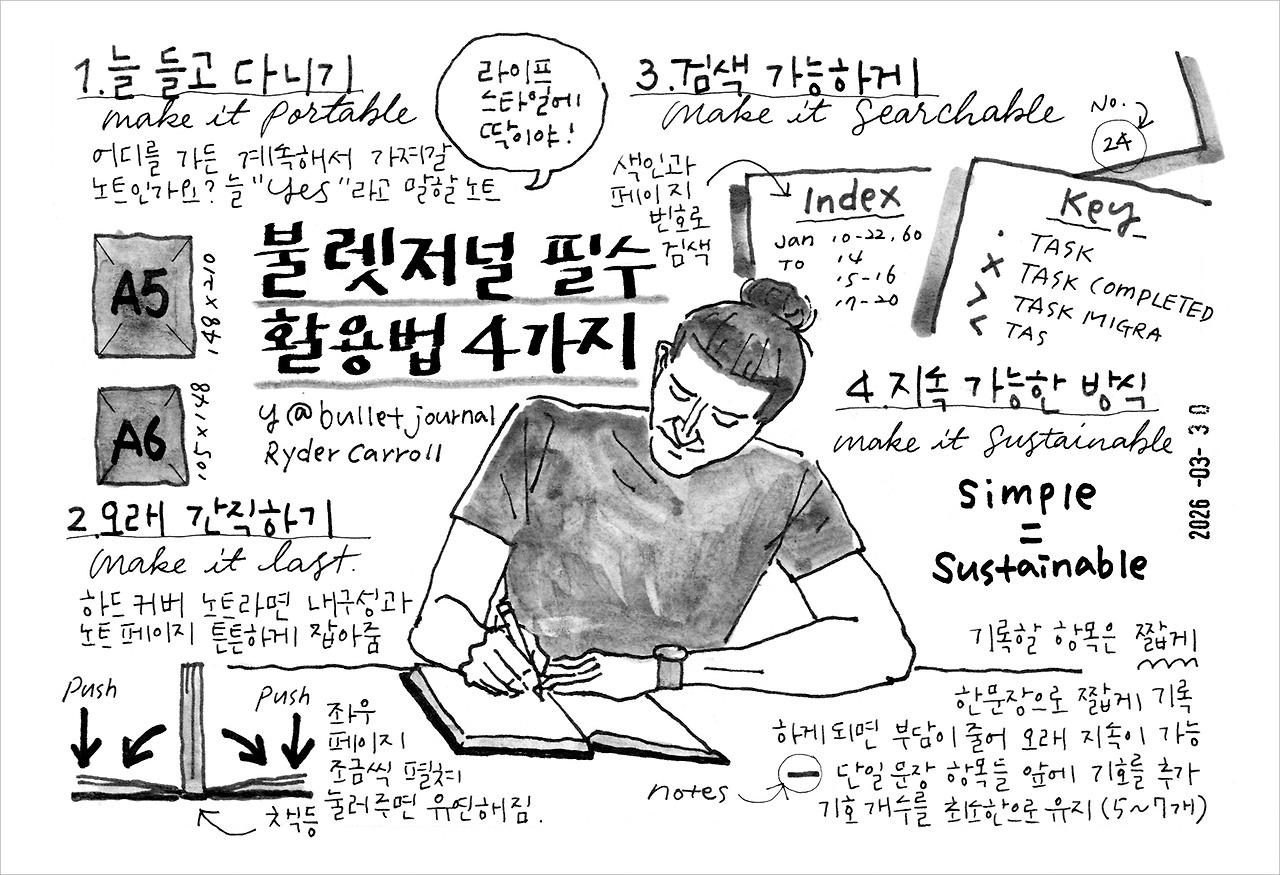 1. 늘 들고 다니기
make it portable
어디를 가든 계속해서 가져갈
노트인가요? 늘 "yes"라고 말할 노트
라이프
스타일에
딱이야!
A5
148 x 210
A6
105 x 148
불렛저널 필수
활용법 4가지
y@bulletjournal
Ryder Carroll
2. 오래 간직하기
make it last.
하드커버 노트라면 내구성과
노트 페이지 튼튼하게 잡아줌
Push
Push
좌우
페이지
조금씩 펼쳐
눌러주면 유연해짐.
책등
3. 검색 가능하게
make it searchable
색인과
페이지
번호로
검색
Index
Jan 10-22, 60
TO 14
15-16
17-20
No.
24
Key
· TASK
x TASK COMPLETED
> TASK MIGRA
< TAS
4. 지속 가능한 방식
make it sustainable
Simple
=
Sustainable
2026 -03- 30
기록할 항목은 짧게
한문장으로 짧게 기록
하게 되면 부담이 줄어 오래 지속이 가능
notes
— 단일 문장 항목들 앞에 기호를 추가
기호 개수를 최소한으로 유지 (5~7개)